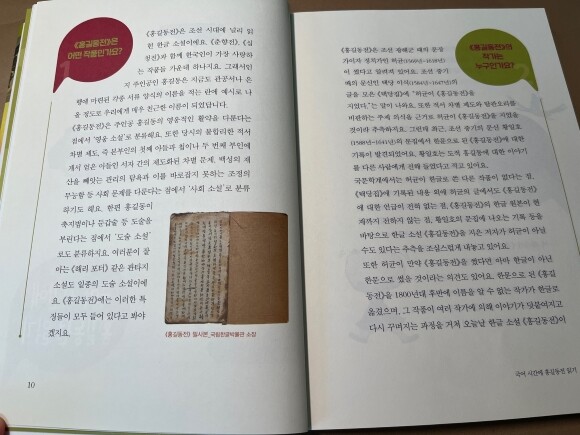 《홍길동전》은
어떤 작품인가요?
《홍길동전》은 조선 시대에 널리 읽
힌 한글 소설이에요. 《춘향전》, 《심
청전》과 함께 한국인이 가장 사랑하
는 작품들 가운데 하나지요. 그래서인
지 주인공인 홍길동은 지금도 관공서나 은
행에 마련된 각종 서류 양식의 이름을 적는 란에 예시로 나
올 정도로 우리에게 매우 친근한 이름이 되었답니다.
《홍길동전》은 주인공 홍길동의 영웅적인 활약을 다룬다는
점에서 '영웅 소설'로 분류해요. 또한 당시의 불합리한 적서
차별 제도, 즉 본부인의 첫째 아들과 첩이나 두 번째 부인에
게서 얻은 아들인 서자 간의 제도화된 차별 문제, 백성의 재
산을 빼앗는 관리의 탐욕과 이를 바로잡지 못하는 조정의
무능함 등 사회 문제를 다룬다는 점에서 '사회 소설'로 분류
하기도 해요. 한편 홍길동이
축지법이나 둔갑술 등 도술을
부린다는 점에서 '도술 소설'
로도 분류하지요. 여러분이 잘
아는 《해리 포터》 같은 판타지
소설도 일종의 도술 소설이에
요. 《홍길동전》에는 이러한 특
징들이 모두 들어 있다고 봐야
겠지요.
《홍길동전》 필사본_국립한글박물관 소장
10
《홍길동전》의
작가는
누구인가요?
《홍길동전》은 조선 광해군 때의 문장
가이자 정치가인 허균(1569년~1618년)
이 썼다고 알려져 있어요. 조선 중기
때의 문신인 택당 이식(1584년~1647년)의
글을 모은 《택당집》에 "허균이 《홍길동전》을
지었다."는 말이 나와요. 또한 적서 차별 제도와 탐관오리를
비판하는 주제 의식을 근거로 허균이 《홍길동전》을 지었을
것이라 추측하지요. 그런데 최근, 조선 중기의 문신 황일호
(1588년~1641년)의 문집에서 한문으로 쓴 《홍길동전》에 대한
기록이 발견되었어요. 황일호는 도적 홍길동에 대한 이야기
를 다른 사람에게 전해 들었다고 적고 있어요.
국문학계에서는 허균이 한글로 쓴 다른 작품이 없다는 점,
《택당집》에 기록된 내용 외에 허균의 글에서도 《홍길동전》
에 대한 언급이 전혀 없는 점, 《홍길동전》의 한글 원본이 현
재까지 전하지 않는 점, 황일호의 문집에 나오는 기록 등을
바탕으로 한글 소설 《홍길동전》을 지은 저자가 허균이 아닐
수도 있다는 추측을 조심스럽게 내놓고 있어요.
또한 허균이 만약 《홍길동전》을 썼다면 아마 한글이 아닌
한문으로 썼을 것이라는 의견도 있어요. 한문으로 된 《홍길
동전》을 1800년대 후반에 이름을 알 수 없는 작가가 한글로
옮겼으며, 그 작품이 여러 작가에 의해 이야기가 덧붙여지고
다시 꾸며지는 과정을 거쳐 오늘날 한글 소설 《홍길동전》이
국어 시간에 홍길동전 읽기